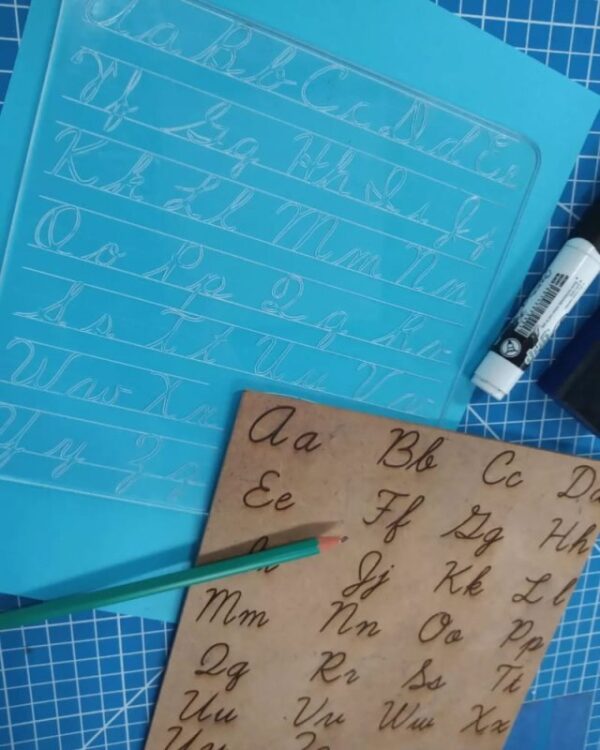 Aa Bb Cc Dd Ee
Ff Gg Hh Ii Jj
Kk Ll Mm Nn
Oo Pp Qq Rr
Ss Tt Uu Vv
Ww Xx
Yy Zz
Aa Bb Cc Dd
Ee Ff Gg Hh
Jj Kk Ll
Mm Nn Oo Pp
Qq Rr Ss Tt
Uu Vv Ww Xx